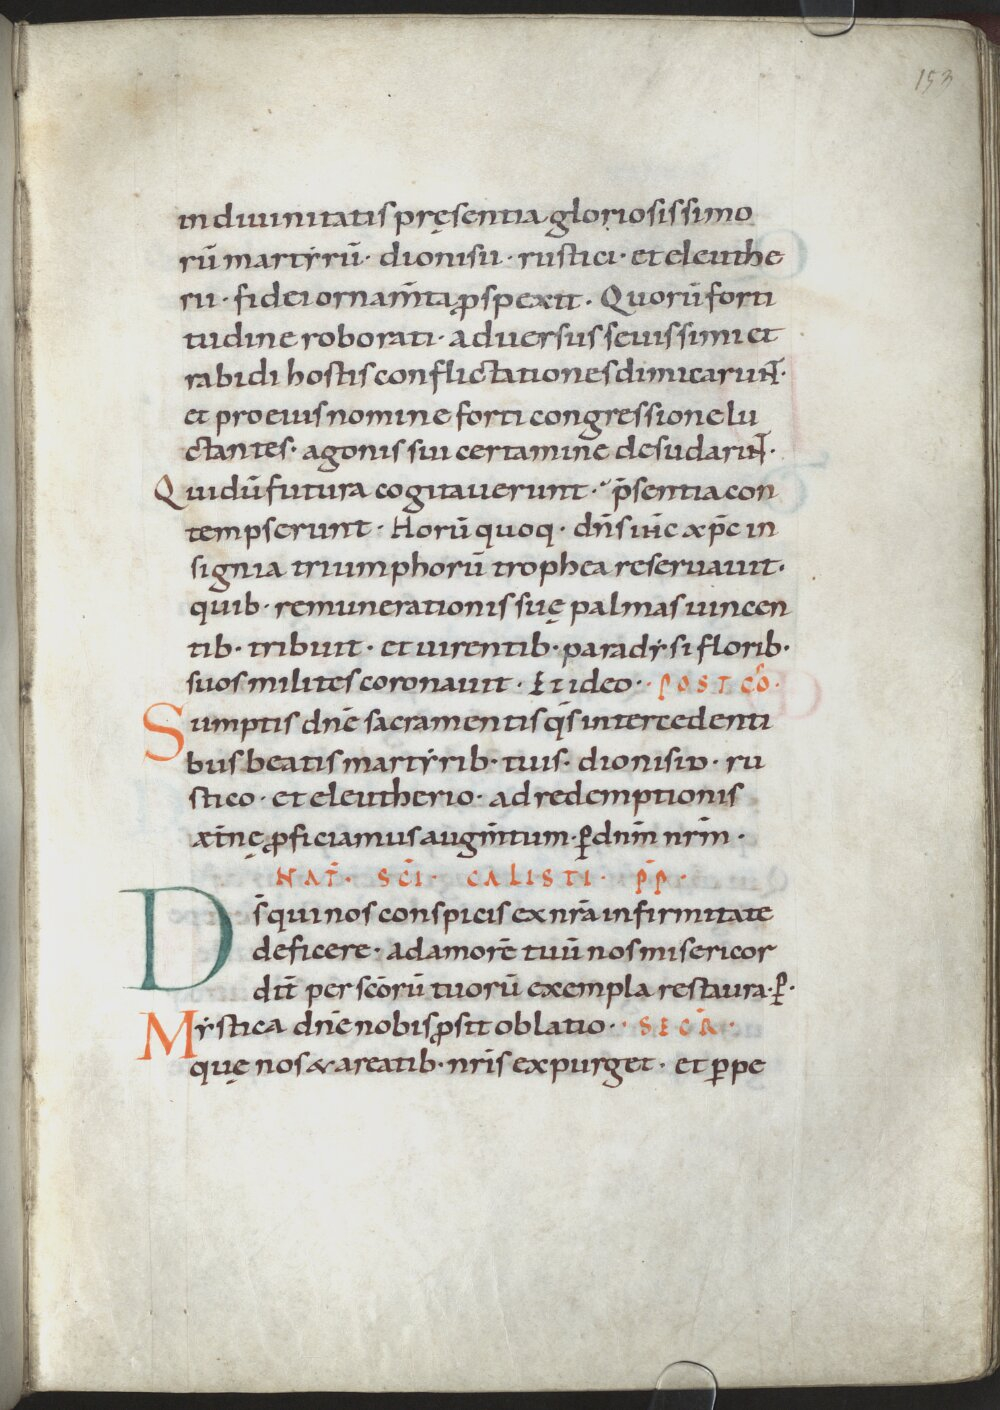 153
in diuinitatis pręsentia gloriosissimo
rū martẏrū· dionisii · rustici· et eleuthe
rii · fidei ornam̄ta ꝓspexit · Quorū forti
tudine roborati· aduersus seuissimi et
rabidi hostis conflictationes dimicaruNT·
et pro eius nomine forti congressione lu
ctantes· agonis sui certamine desudaruNT·
Qui dū futura cogitauerunt· p̄sentia con
tempserunt · Horū quoq· dn̄s ih̄c xp̄c in
signia triumphorū trophea reseruauit·
quib· remunerationis suę palmas uincen
tib· tribuit · et uirentib· paradẏsi florib·
suos milites coronauit · Et ideo· POST CŌ·
Sumptis dn̄e sacramentis q̄s intercedenti
bus beatis martẏrib· tuis· dionisio · ru
stico · et eleutherio· ad redemptionis
æt̄nę ꝓficiamus augm̄tum· ꝑ dn̄m nr̄m ·
NAT̄· SC̄I· CALISTI· P̄P̄·
Ds̄ qui nos conspicis ex nr̄a infirmitate
deficere· ad amorē tuū nos misericor
dit̄ per sc̄orū tuorū exempla restaura· ꝑ·
Mẏstica dn̄e nobis ꝓsit oblatio· · SECR̄ ·
quę nos & a reatib· nr̄is expurget · et ꝑpe